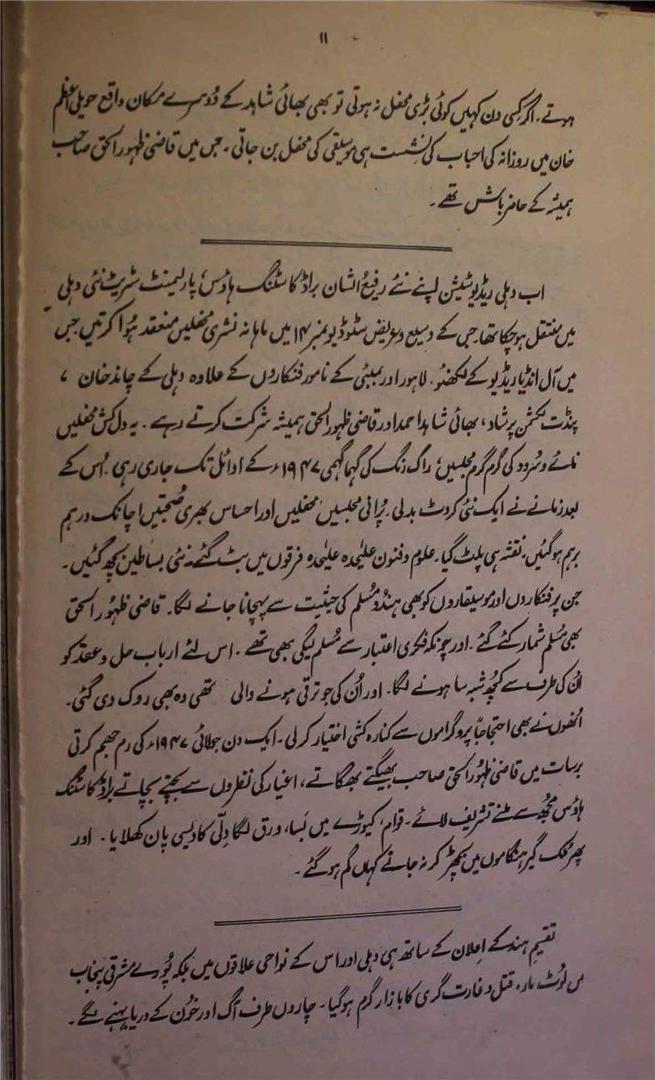 ۱۱
ہوتے۔ اگر کسی دن کہیں کوئی بڑی محفل نہ ہوتی تو بھی بھائی شاہد کے دوسرے مکان واقع حویلی اعظم
خان میں روزانہ کی احباب کی نشست ہی موسیقی کی محفل بن جاتی۔ جس میں قاضی ظہور الحق صاحب
ہمیشہ کے حاضر باش تھے۔
اب دہلی ریڈیو سٹیشن اپنے نئے رفیع الشان براڈ کاسٹنگ ہاؤس، پارلیمنٹ سٹریٹ نئی دہلی
میں منتقل ہو چکا تھا جس کے وسیع و عریض سٹوڈیو نمبر ۱۴ میں ماہانہ نشری محفلیں منعقد ہُوا کرتیں جس
میں آل انڈیا ریڈیو کے لکھنؤ، لاہور اور بمبئی کے نامور فنکاروں کے علاوہ دہلی کے چاند خان ،
پنڈت لکشمن پرشاد، بھائی شاہد احمد اور قاضی ظہور الحق ہمیشہ شرکت کرتے رہے۔ یہ دل کش محفلیں
نائے و سُرود کی گرم گرم مجلسیں، راگ رنگ کی گہما گہمی ۱۹۴۷ء کے اوائل تک جاری رہی۔ اُس کے
بعد زمانے نے ایک نئی کروٹ بدلی۔ پُرانی مجلسیں، محفلیں اور احساس بھری صُحبتیں اچانک درہم
برہم ہو گئیں۔ نقشہ ہی پلٹ گیا۔ علوم و فنون علیٰحدہ علیٰحدہ فرقوں میں بٹ گئے۔ نئی بساطیں بچھ گئیں۔
جن پر فنکاروں اور موسیقاروں کو بھی ہندُو مُسلم کی حیثیت سے پہچانا جانے لگا۔ قاضی ظہُور الحق
بھی مُسلم شمار کئے گئے۔ اور چونکہ فکری اعتبار سے مُسلم لیگی بھی تھے۔ اس لئے اربابِ حل و عقد کو
اُن کی طرف سے کچھ شبہ سا ہونے لگا۔ اور اُن کی جو ترقی ہونے والی تھی وہ بھی روک دی گئی۔
اُنھوں نے بھی احتجاجاً پروگراموں سے کنارہ کشی اختیار کر لی۔ ایک دن جولائی ۱۹۴۷ء کی رم جھم کرتی
برسات میں قاضی ظہُور الحق صاحب بھیگتے بھگاتے، اغیار کی نظروں سے بچتے بچاتے براڈ کاسٹنگ
ہاؤس مجھ سے ملنے تشریف لائے۔ قوام، کیوڑے میں بسا، ورق لگا دِلّی کا دیسی پان کھلایا۔ اور
پھر ملک گیر ہنگاموں میں بچھڑ کر نہ جانے کہاں گم ہو گئے۔
تقسیم ہند کے اعلان کے ساتھ ہی دہلی اور اس کے نواحی علاقوں میں بلکہ پُورے مشرقی پنجاب
میں لُوٹ مار، قتل و غارت گری کا بازار گرم ہو گیا۔ چاروں طرف آگ اور خُون کے دریا بہنے لگے۔